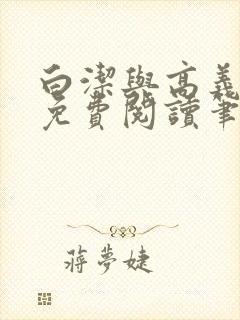 白潔與高義
免費閱讀筆
蔣夢婕